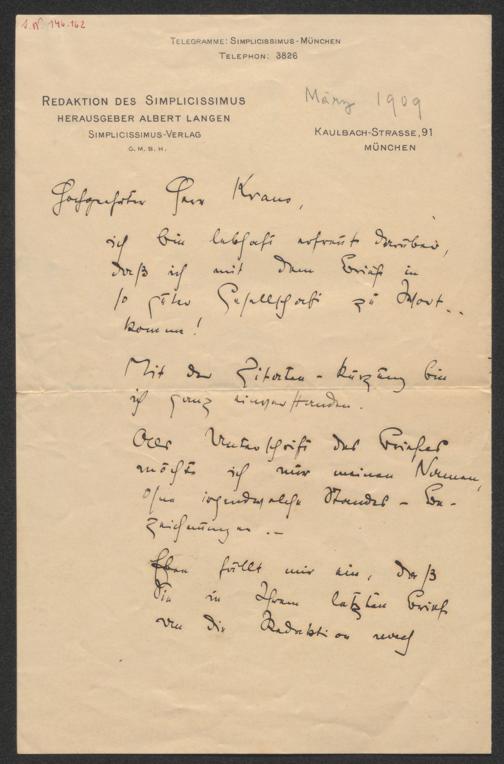 I. N. 146.162
TELEGRAMME: SIMPLICISSIMUS-MÜNCHEN
TELEPHON: 3826
REDAKTION DES SIMPLICISSIMUS
HERAUSGEBER ALBERT LANGEN
SIMPLICISSIMUS-VERLAG
G. M. B. H.
März 1909
KAULBACH-STRASSE, 91
MÜNCHEN
Hochgeehrter Herr Kraus,
ich bin lebhaft erfreut darüber,
daß ich mit dem Brief in
so guter Gesellschaft zu Wort
komme!
Mit der Zitaten-kürzung bin
ich ganz einverstanden.
Als Unterschrift des Briefes
möchte ich nur meinen Namen,
ohne irgendwelche Standes-Be-
zeichnungen. –
Eben fällt mir ein, daß
Sie in Ihrem letzten Brief
von der Redaktion noch